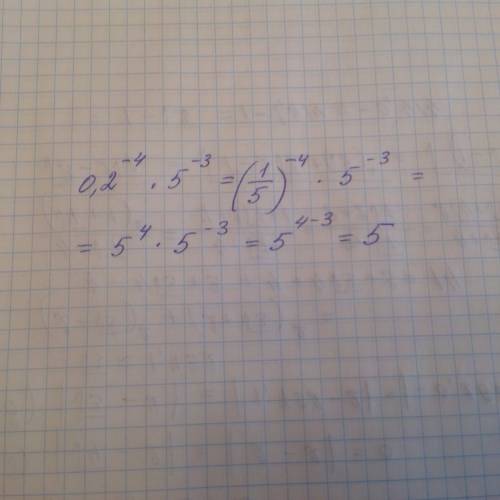 0,2⁻⁴ · 5⁻³ = (1/5)⁻⁴ · 5⁻³ =
= 5⁴ · 5⁻³ = 5⁴⁻³ = 5